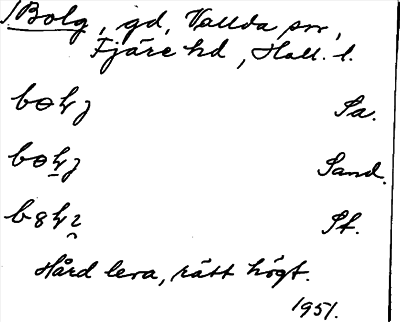 Bolg, gd, Vallda sn,
Fjäre hd, Hall. l.
Sa.
Sand.
St.
Hård lera, rätt högt.
1951.